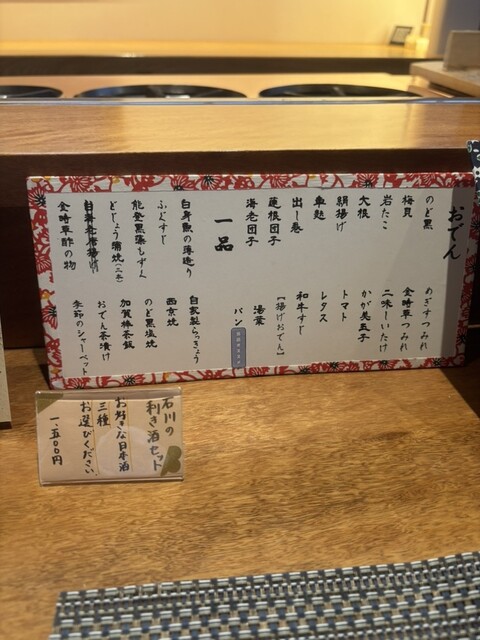 おでん
のど黒
梅貝
岩だこ
大根
絹揚げ
車麩
出し巻
蓮根団子
海老団子
めぎすつみれ
金時草つみれ
二味しいたけ
かが美玉子
トマト
レタス
和牛すじ
【揚げおでん】
湯葉
パン
一品
白身魚の薄造り
ふぐすじ
能登黒藻もずく
どじょう蒲焼(二本)
金時草酢の物
自家製らっきょう
西京焼
のど黒塩焼
加賀棒茶飯
おでん茶漬け
季節のシャーベット
石川の
利き酒セット
お好きな日本酒
三種
お選びください
一、五〇〇円